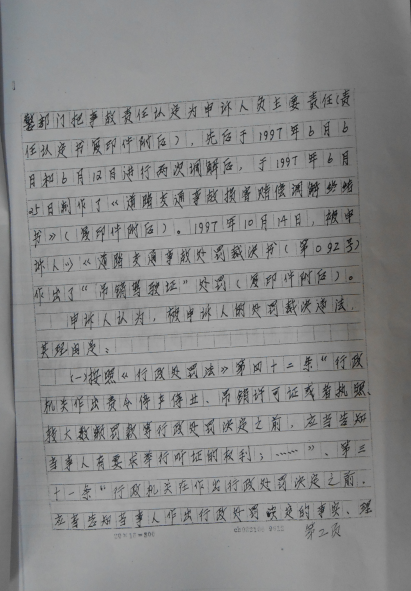 警部门把事故责任认定为申诉人负主要责任(责
任认定书复印件附后)，先后于1997年6月6
日和6月12日进行两次调解后，于1997年6月
25日制作了《道路交通事故损害赔偿调解终结
书》(复印件附后)。1997年10月14日，被申
诉人以《道路交通事故处罚裁决书(第092号)
作出了“吊销驾驶证”处罚(复印件附后)。
申诉人认为，被申诉人的处罚裁决违法，
其理由是：
(一)按照《行政处罚法》第四十二条“行政
机关作出责令停产停业、吊销许可证或者执照、
较大数额罚款等行政处罚决定之前，应当告知
当事人有要求举行听证的权利；……”、第三
十一条“行政机关在作出行政处罚决定之前，
应当告知当事人作出行政处罚决定的事实、理
第二页